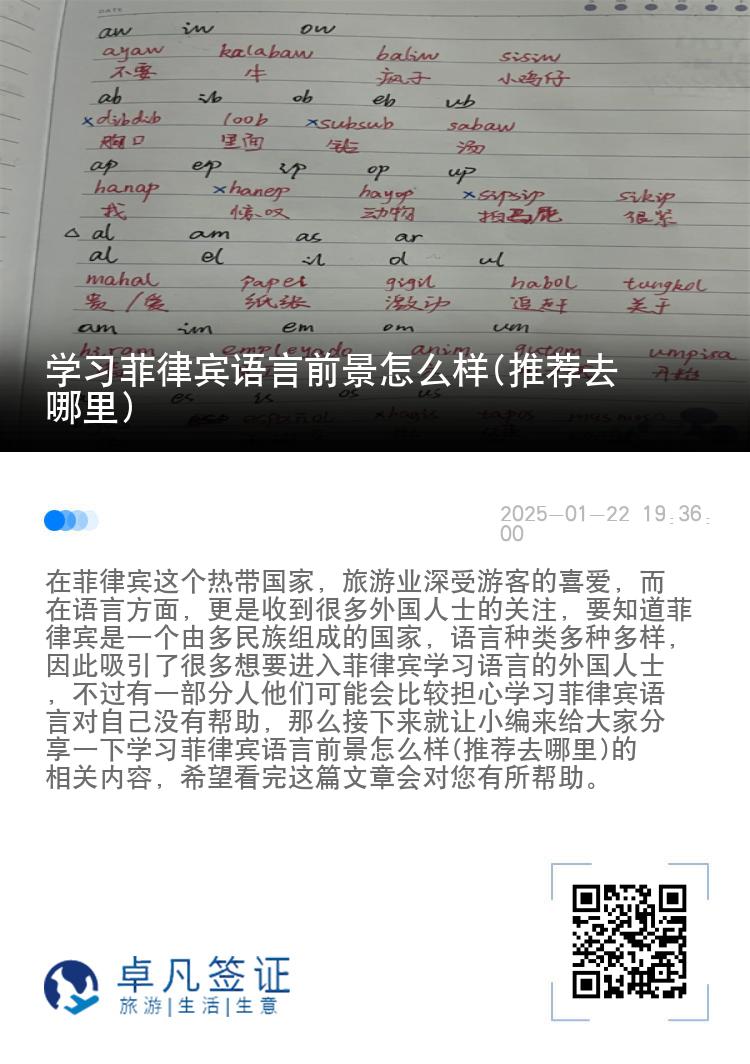 DATE
aw iw ow
ayaw kalabaw baliw sisiw
不要 牛 疯子 小鸡仔
ab ib ob eb ub
xdibdib loob xsubsub sabaw
胸口 里面 钻 汤
ap ep ip op up
hanap xhanep hayop xsipsip sikip
找 惊叹 动物 拍马屁 很紧
△ al am as ar
al el il ol ul
mahal papel gigil habol tungkol
贵/爱 纸张 激动 追赶 关于
am im em om um
hiram empleyado anim gutom umpisa
开始
学习菲律宾语言前景怎么样(推荐去
哪里)
es is os us
espanol xhagis tapos
2025-01-22 19:36:
00
在菲律宾这个热带国家，旅游业深受游客的喜爱，而
在语言方面，更是收到很多外国人士的关注，要知道菲
律宾是一个由多民族组成的国家，语言种类多种多样，
因此吸引了很多想要进入菲律宾学习语言的外国人士
，不过有一部分人他们可能会比较担心学习菲律宾语
言对自己没有帮助，那么接下来就让小编来给大家分
享一下学习菲律宾语言前景怎么样(推荐去哪里)的
相关内容，希望看完这篇文章会对您有所帮助。
卓凡签证
旅游|生活|生意